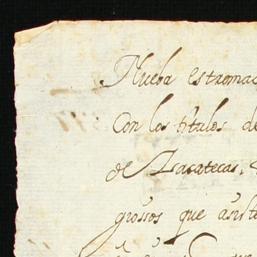 Nueba estromac
Con los titulos de
de Zacatecas,
grosos que asiste